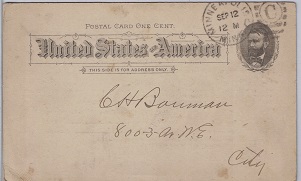 POSTAL CARD ONE CENT.
United States of America
THIS SIDE IS FOR ADDRESS ONLY.
MINNEAPOLIS
SEP 12
12 M
C
C H Bowman
N.E.
City